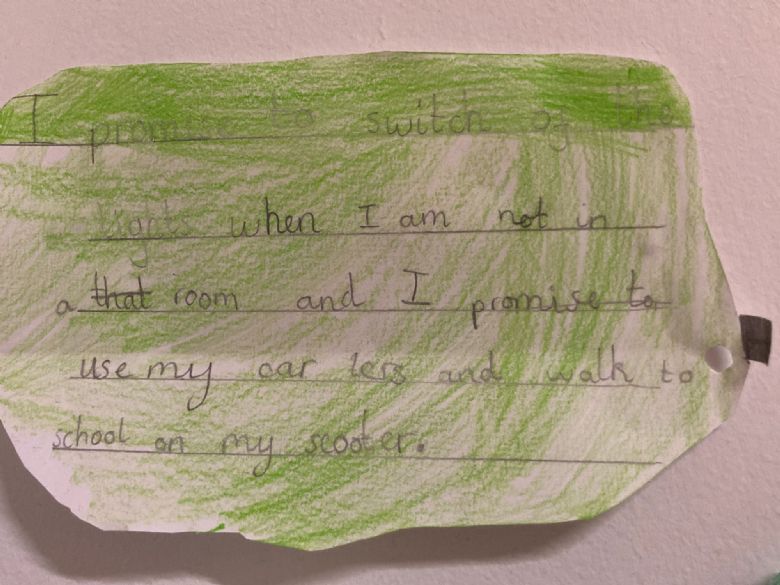 I promise to switch of the
lights when I am not in
a that room and I promise to
use my car less and walk to
school on my scooter.